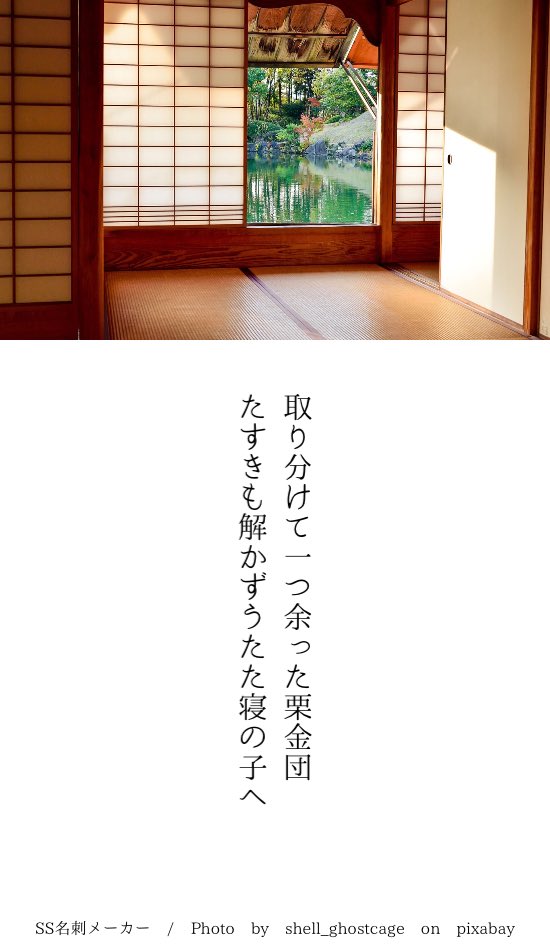 取り分けて一つ余った栗金団
たすきも解かずうたた寝の子へ
SS名刺メーカー / Photo by shell_ghostcage on pixabay